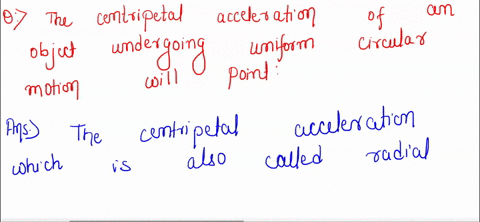 Q:> The centripetal acceleration of an
object undergoing uniform circular
motion will point:
Ans:) The centripetal acceleration
which is also called radial